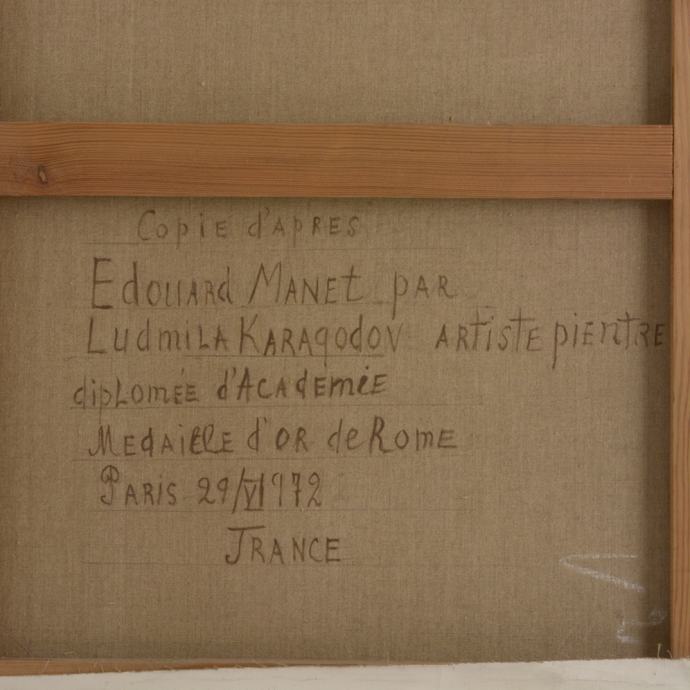 Copie d'APRES
Edouard MANEt par
Ludmila Karagodov artiste pientre
diplomée d'Académie
Medaille d'or de Rome
Paris 29/VI 1972
FRANCE